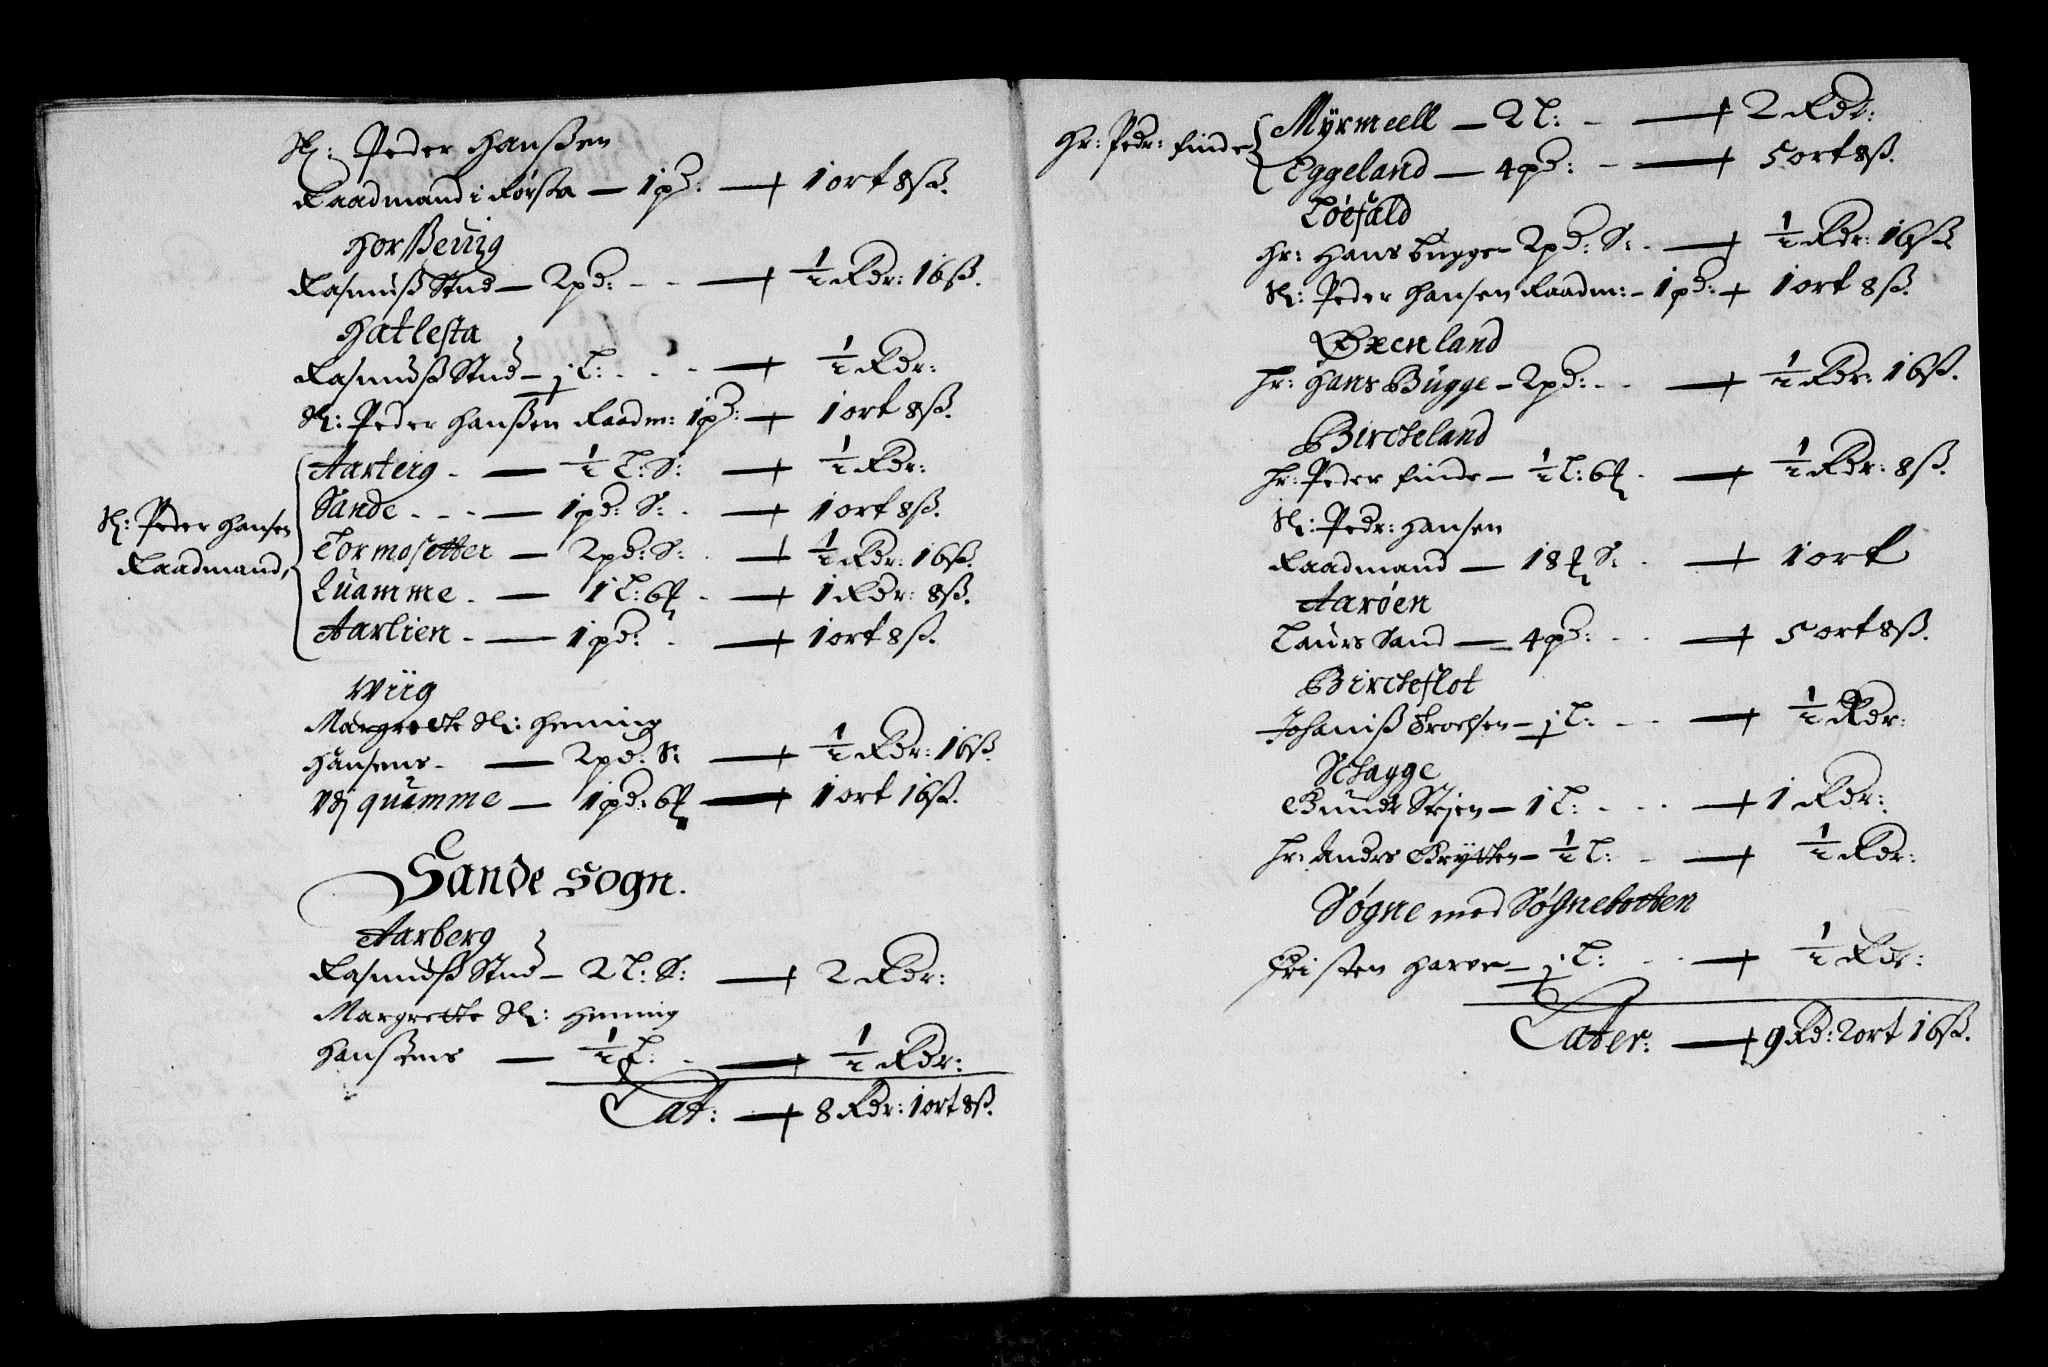 Sl: Peder Hanßen
Raadmand i Førsta — 1 pd: — 1 ort 8 ß.
Horßeuig
Rasmuß Stud — 2 pd: - - — ½ Rdr: 16 ß.
Hatlesta
Rasmuß Stud — j L: - - - — ½ Rdr:
Sl: Peder Hanßen Raadm: 1 pd: — 1 ort 8 ß.
Sl: Peder Hansen
Raadmand,
Aarteig - — ½ L: S: — ½ Rdr:
Sande - - - — 1 pd: S: - — 1 ort 8 ß.
Tormosetter — 2 pd: S: - — ½ Rdr: 16 ß.
Quamme - — 1 L: 6 ℔ - — 1 Rdr: 8 ß.
Aarlien - — 1 pd: - — 1 ort 8 ß.
Wiig
Margrette Sl: Heming
Hansens - — 2 pd: S: — ½ Rdr: 16 ß.
Vdj quamme — 1 pd: 6 ℔ — 1 ort 16 ß.
Sande Sogn.
Aarberg
Rasmuß Stud — 2 L: S: — 2 Rdr:
Margrette Sl: Heming
Hanßens — ½ L: - — ½ Rdr:
Lat: — 8 Rdr: 1 ort 8 ß.
Hr: Pedr: Finde
Myrmeell — 2 L: - — 2 Rdr:
Eggeland — 4 pd: - — 5 ort 8 ß.
Løefald
Hr: Hans Bugge — 2 pd: S: - — ½ Rdr: 16 ß
Sl: Peder Hansen Raadm: — 1 pd: — 1 ort 8 ß.
Øxenland
Hr: Hans Bugge — 2 pd: - - — ½ Rdr: 16 ß.
Birckeland
Hr: Peder Finde — ½ L: 6 ℔ - — ½ Rdr: 8 ß.
Sl: Pedr: Hansen
Raadmand — 18 ℔ S: - — 1 ort
Aarøen
Laurs Sand — 4 pd: - - — 5 ort 8 ß.
Birckeflot
Johaniß — j L: - - — ½ Rdr:
Schagge
— 1 L: - - - — 1 Rdr:
Hr: Anders Grytten — ½ L: - — ½ Rdr:
Søgne med Søgnebotten
Christen — j L: - - — ½ Rdr:
Later: — 9 Rd: 2 ort 16 ß.